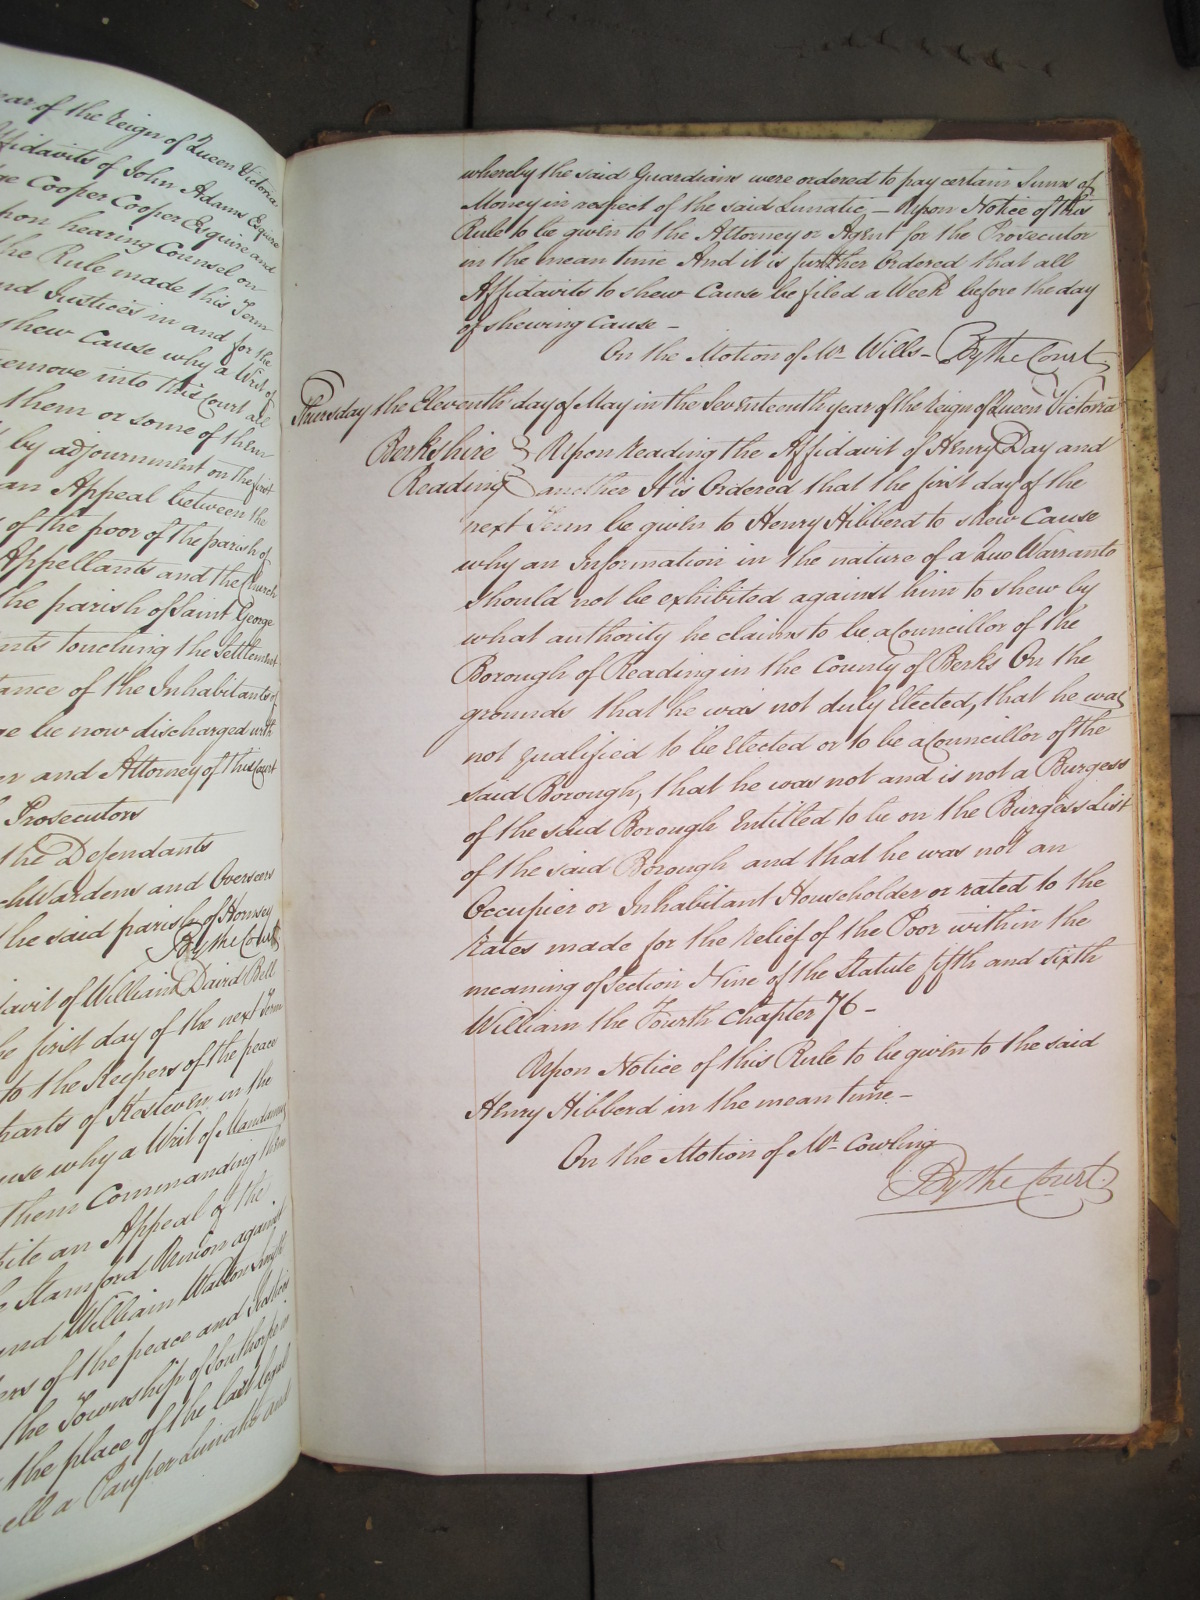 ear of the Reign of Queen Victoria
ffidavits of John Adams Esquire
ge Cooper Cooper Esquire and
pon hearing Counsel on
the Rule made this Term
nd Justices in and for the
shew Cause why a Writ of
remove into this Court all
them or some of them
by adjournment on the first
an Appeal between the
of the poor of the parish of
Appellants and the Church
the parish of Saint George
nts touching the Settlement
tance of the Inhabitants of
ge be now discharged with
er and Attorney of this Court
Prosecutors
the Defendants
chWardens and Overseers
the said parish of Hornsey
By the Court
davit of William David Bell
he first day of the next Term
to the Keepers of the peace
parts of Kesteven in the
use why a Writ of Mandamus
them Commanding them
pite an Appeal of the
Stamford Union against
and William
ers of the peace and Justices
the Township of Southorpe in
the place of the last legal
ell a Pauper Lunatic and
whereby the said Guardians were ordered to pay certain Sums of
Money in respect of the said Lunatic, – Upon Notice of this
Rule to be given to the Attorney or Agent for the Prosecutor
in the mean time And it is further Ordered that all
Affidavits to shew Cause be filed a Week before the day
of shewing Cause –
On the Motion of Mr Wills – By the Court
Thursday the Eleventh day of May in the Seventeenth year of the Reign of Queen Victoria
Berkshire } Upon reading the Affidavit of Henry Day and
Reading } another It is Ordered that the first day of the
next Term be given to Henry Hibberd to shew Cause
why an Information in the nature of a Quo Warranto
should not be exhibited against him to shew by
what authority he claims to be a Councillor of the
Borough of Reading in the County of Berks On the
grounds that he was not duly Elected, that he was
not qualified to be Elected or to be a Councillor of the
said Borough, that he was not and is not a Burgess
of the said Borough Entitled to be on the Burgess List
of the said Borough and that he was not an
Occupier or Inhabitant Householder or rated to the
Rates made for the relief of the Poor within the
meaning of Section Nine of the Statute fifth and sixth
William the Fourth Chapter 76 –
Upon Notice of this Rule to be given to the said
Henry Hibberd in the mean time –
On the Motion of Mr Cowling
By the Court